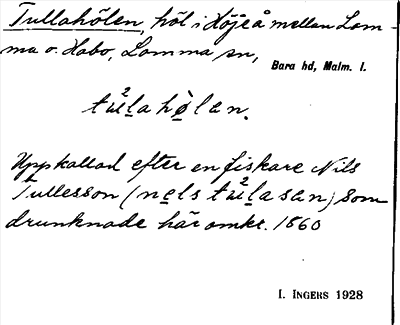 Tullahölen, höl i Höjeå mellan Lom-
ma o. Habo, Lomma sn,
Bara hd, Malm. l.
Uppkallad efter en fiskare Nils
Tullesson (
) som
drunknade här omkr. 1860
I. INGERS 1928